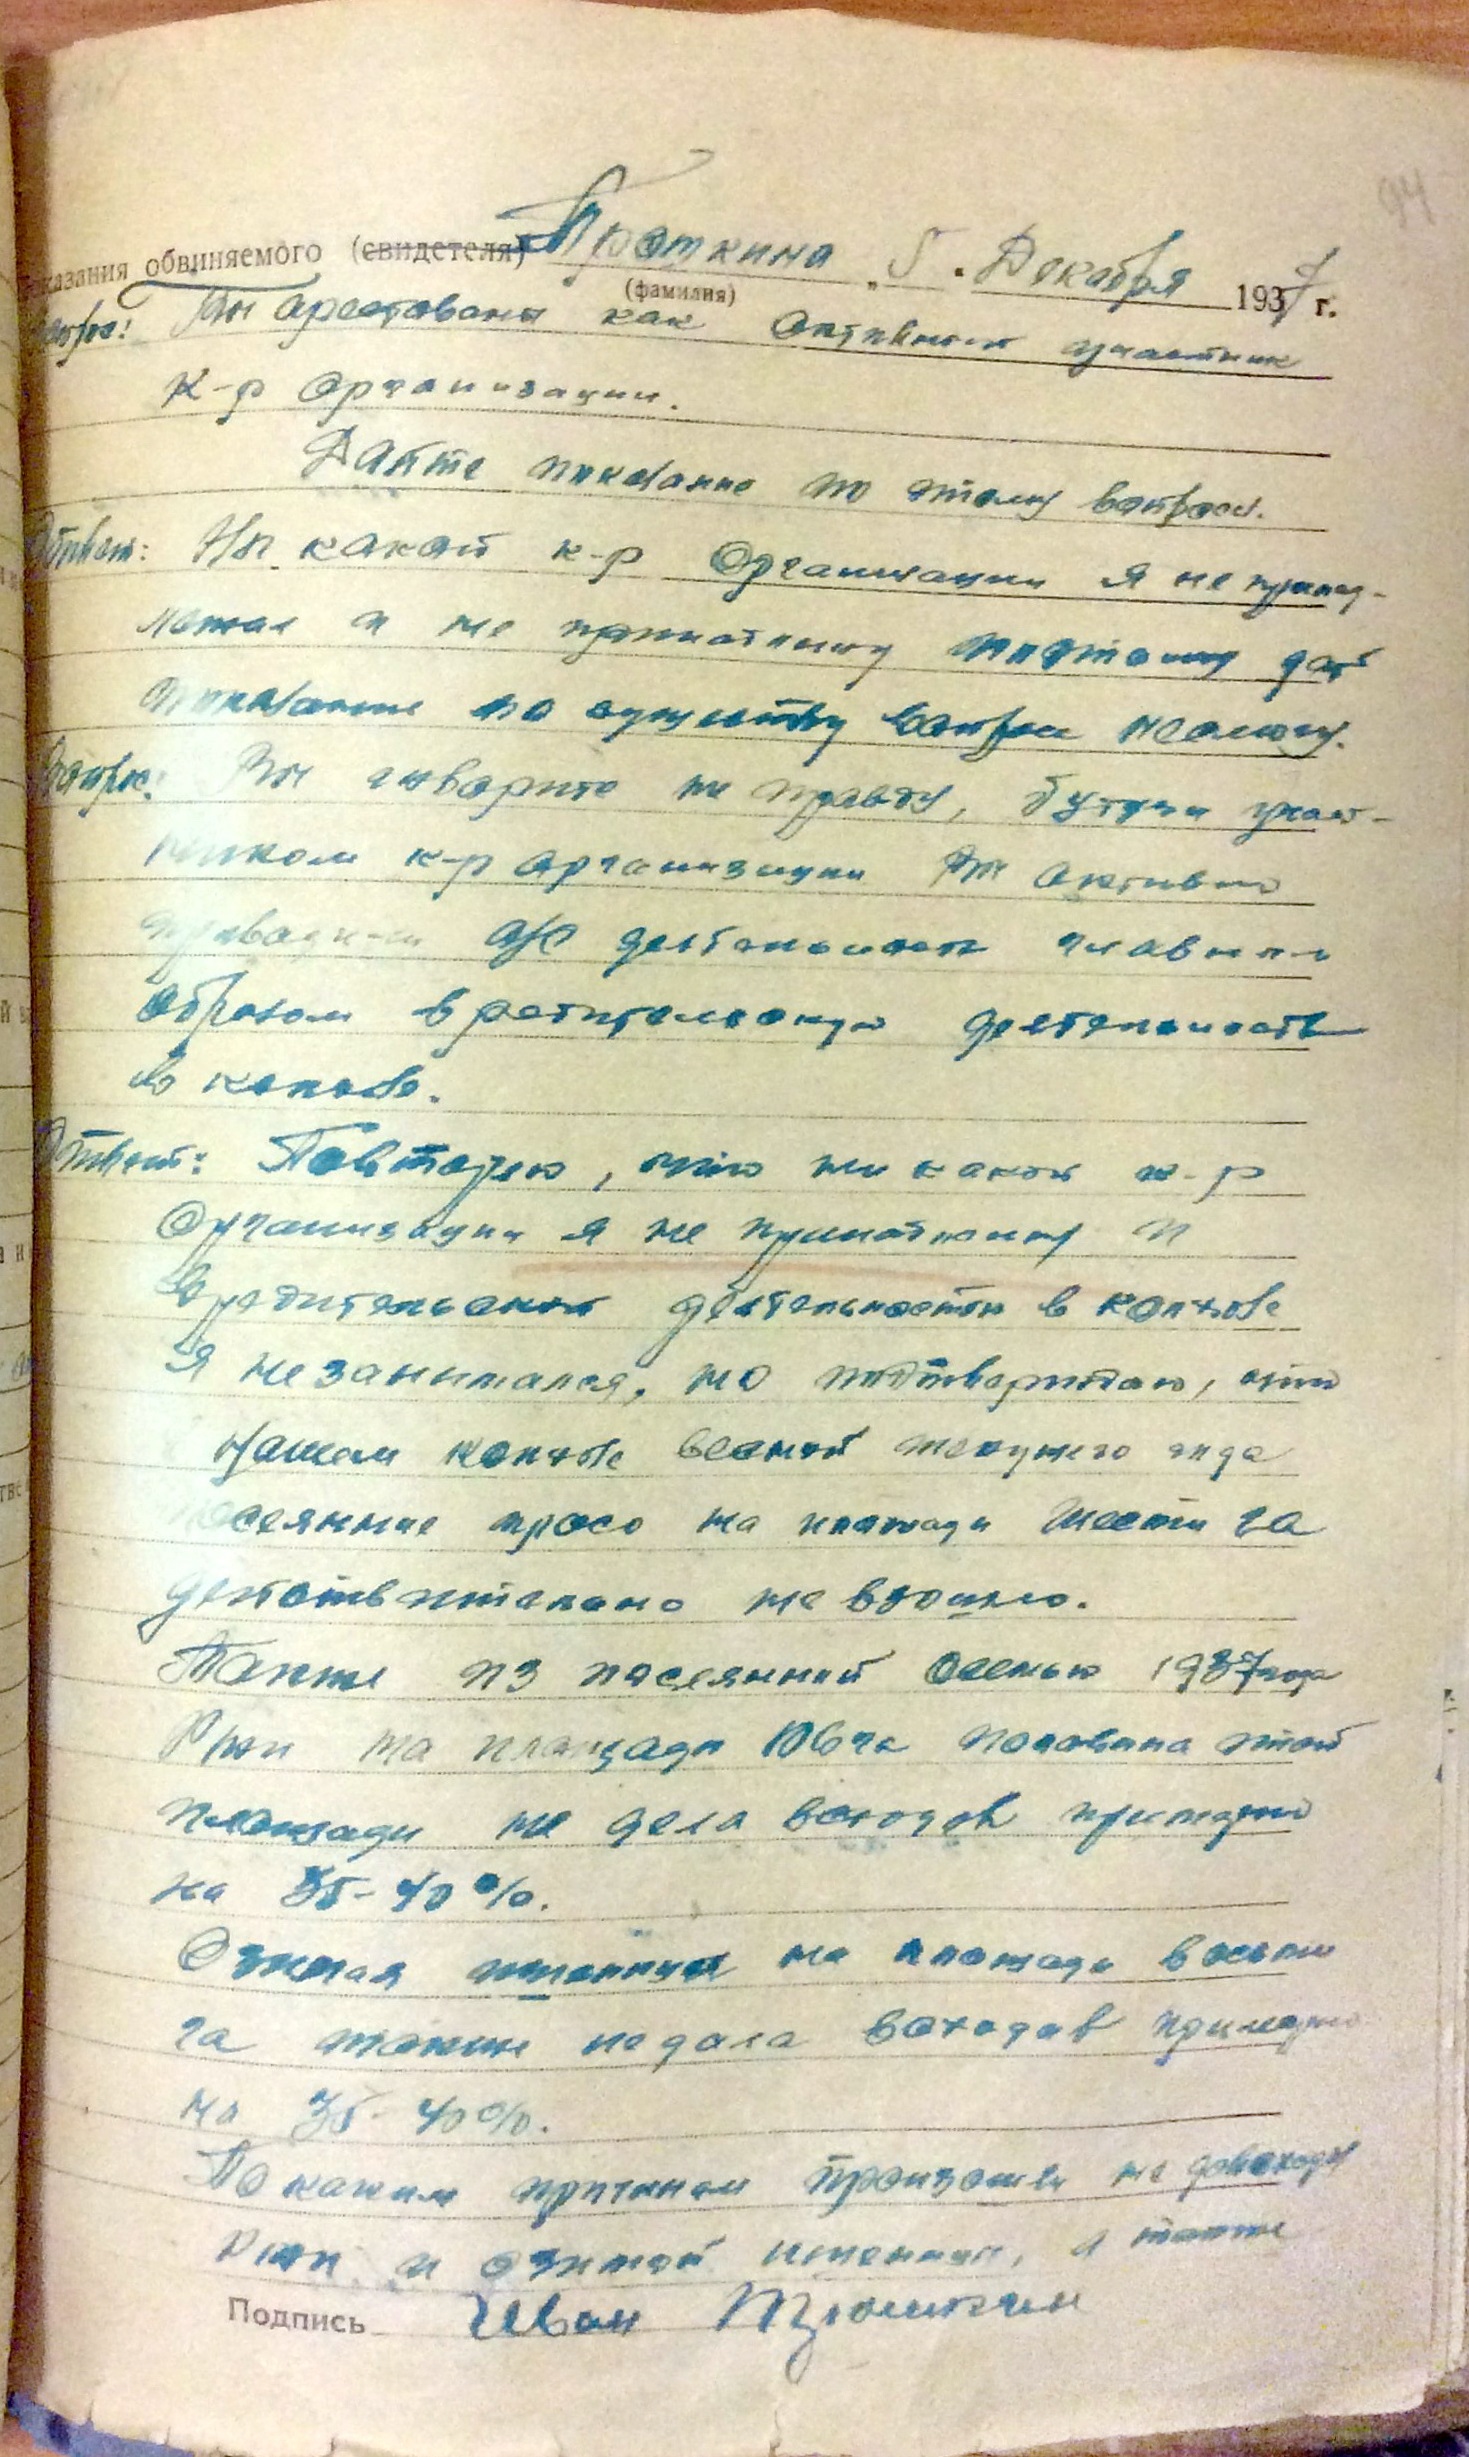 94
казания обвиняемого (свидетеля) 5. Декабря 1937 г.
(фамилия)
Вы арестованы как активный участник
к-р организации.
Дайте показание по этому вопросу.
Ответ: Ни какой к-р организации я не принад-
лежал и не принадлежу поэтому дать
показание по существу вопроса не могу.
Вопрос: Вы говорите не правду, будучи участ-
ником к-р организации Вы активно
проводили а/с деятельность главным
образом вредительскую деятельность
в колхозе.
Ответ: Повторяю, что ни какой к-р
организации я не принадлежу и
вредительской деятельностью в колхозе
я не занимался, но подтверждаю, что
нашем колхозе весной текущего года
посеянное просо на площади шести га
действительно не взошло.
Также из посеянной осенью 1937 года
Ржи на площади га половина этой
площади не дала всходов примерно
на 35-40%.
Озимая пшеница на площади восьми
га также не дала всходов примерно
на 35-40%.
По каким причинам произошли не
Ржи и озимой пшеницы, а также
Подпись Иван